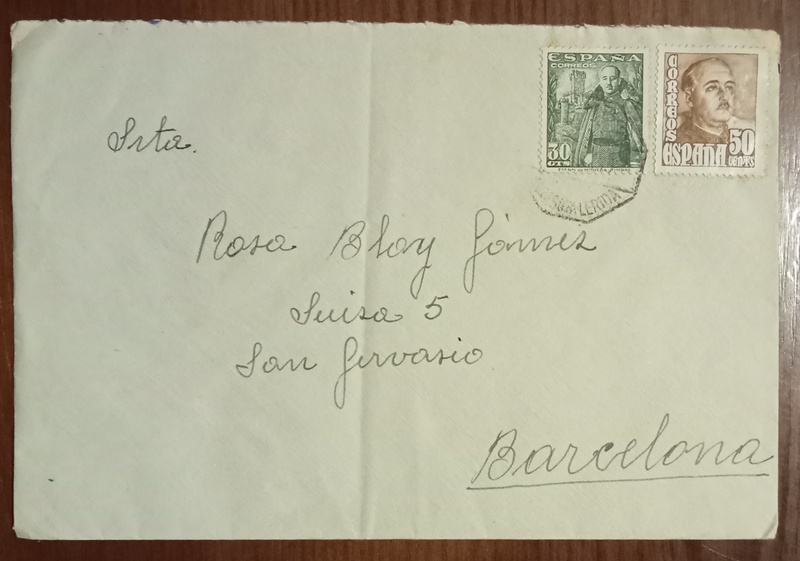 ESPAÑA
CORREOS
30
CTS
CORREOS
ESPAÑA
50
CENTS
LERIDA
Srta.
Rosa Blay Gómez
Suiza 5
San Gervasio
Barcelona